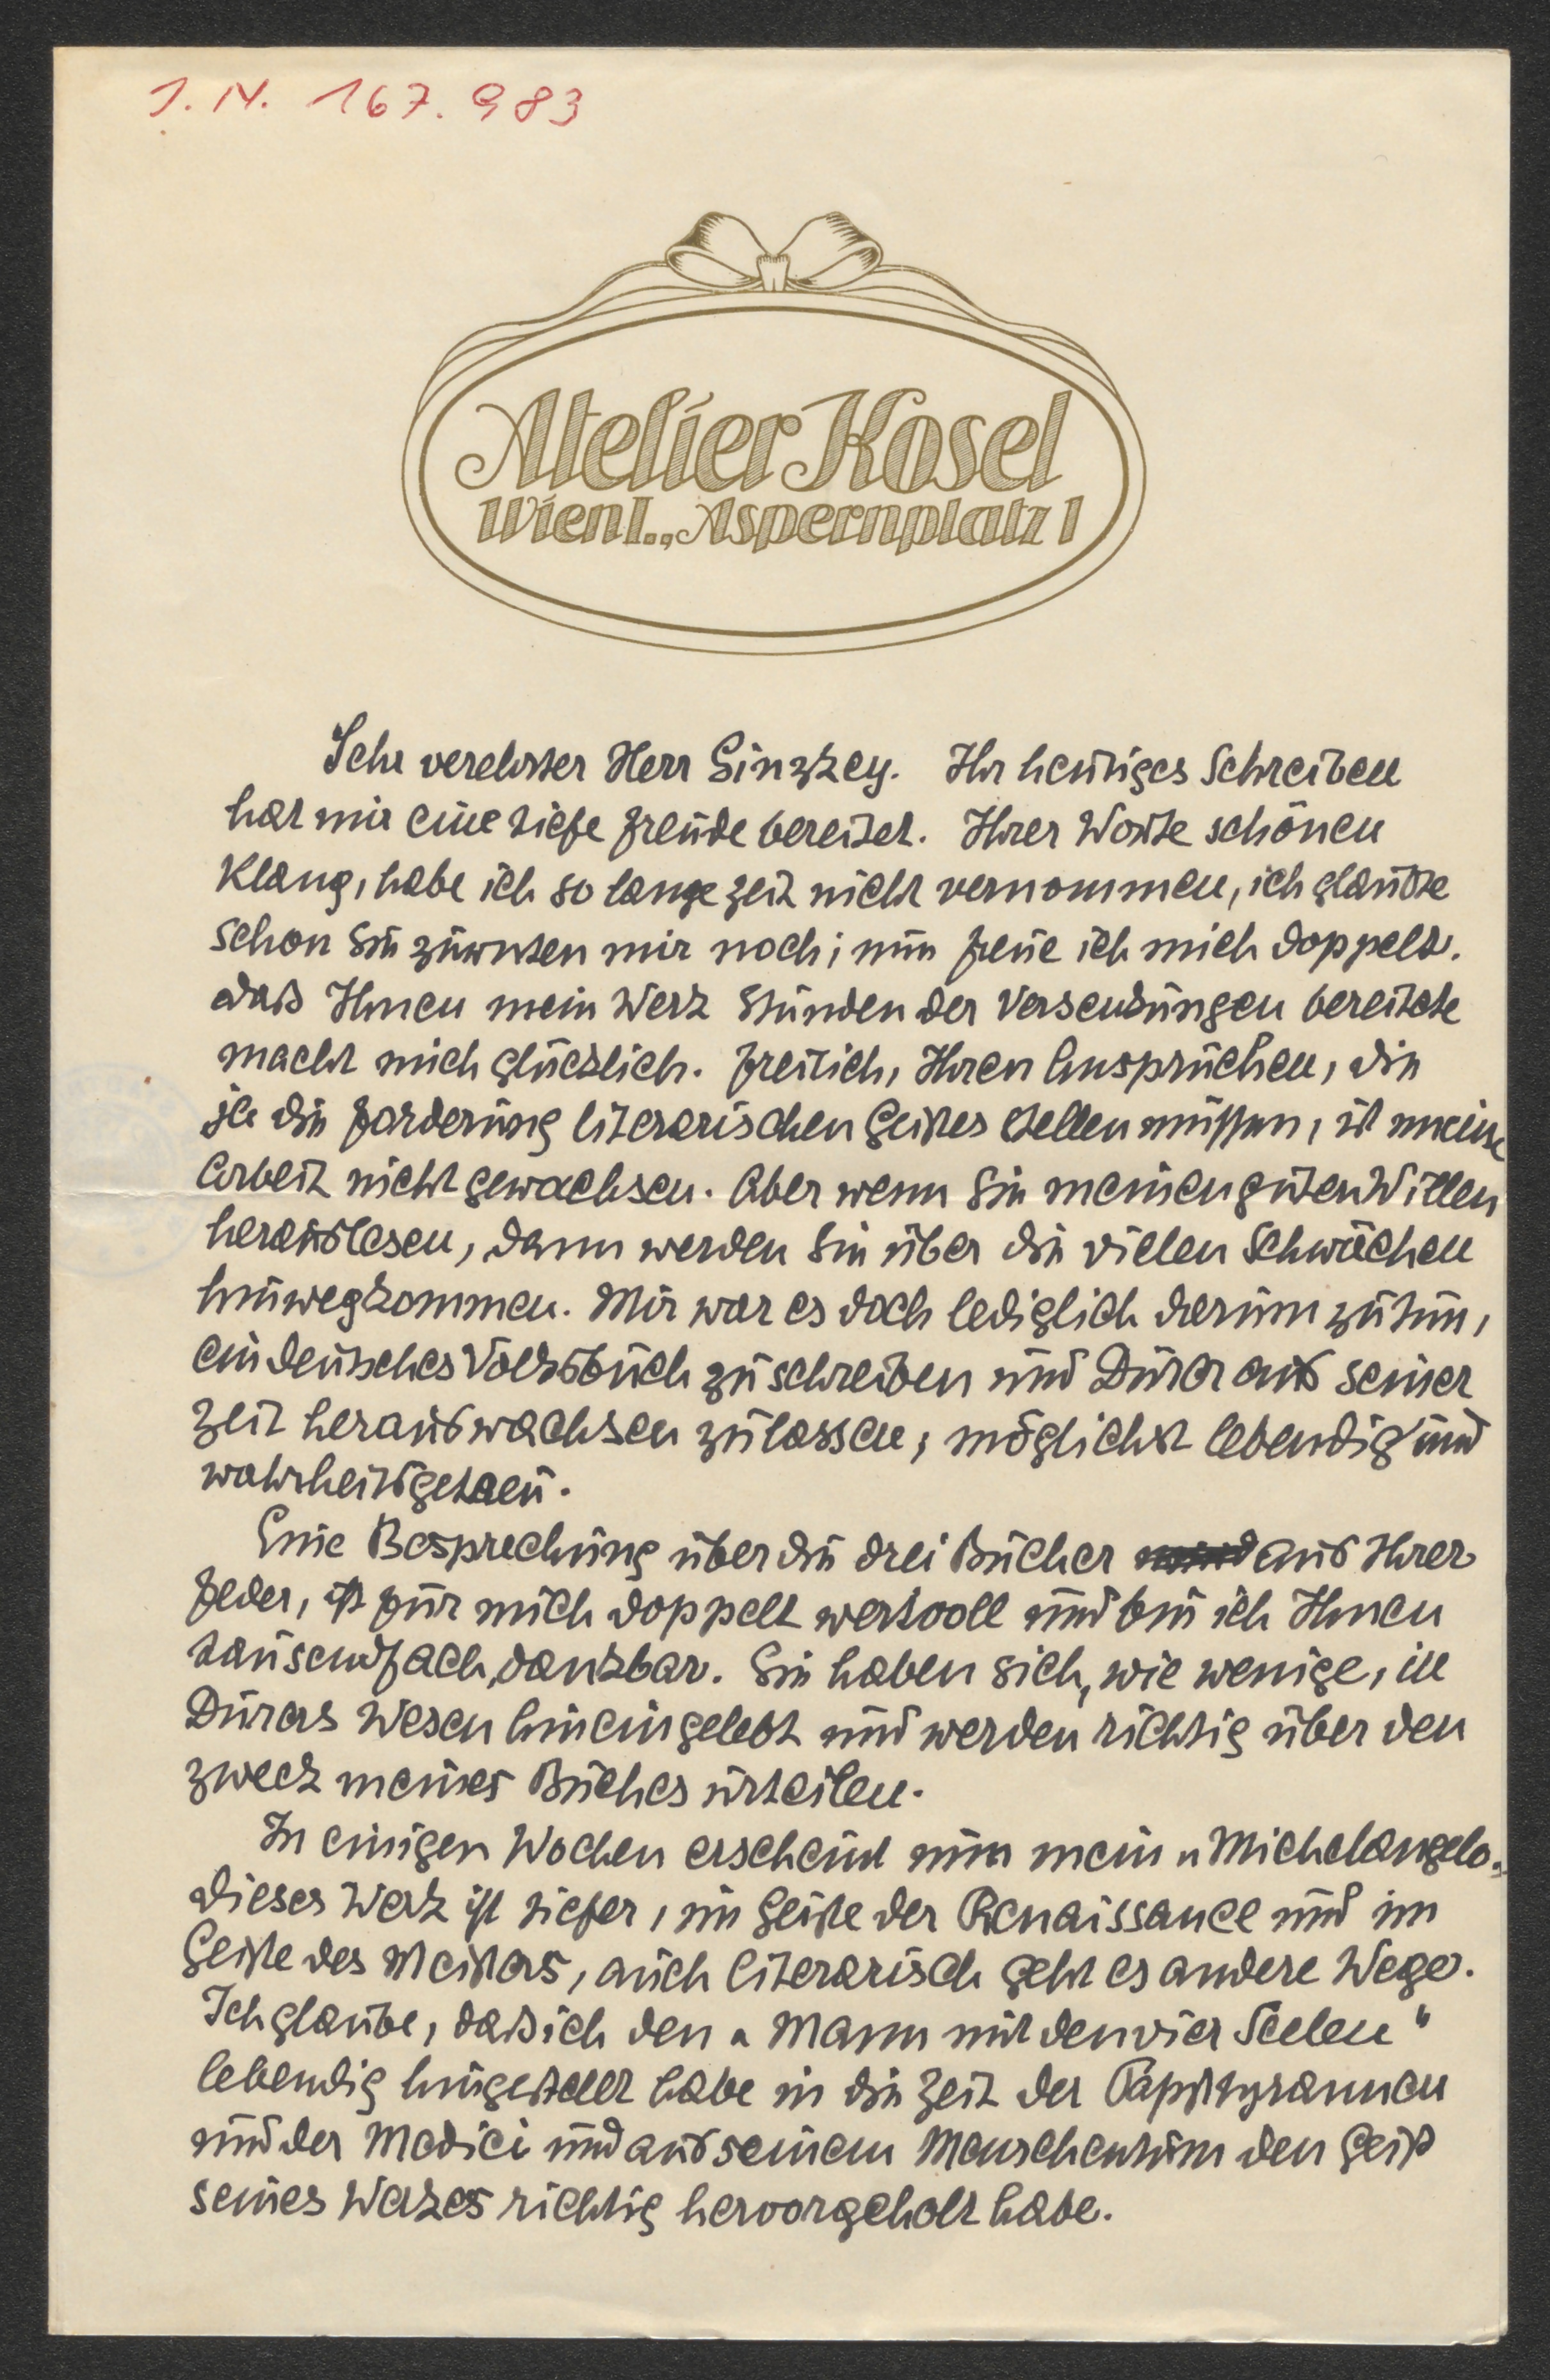 I. N. 167.983
Atelier Kosel
Wien I., Aspernplatz 1
Sehr verehrter Herr Ginzkey. Ihr heutiges Schreiben
hat mir eine tiefe Freude bereitet. Ihrer Worte schönen
Klang, habe ich so lange Zeit nicht vernommen, ich glaubte
schon Sie zürnten mir noch; nun freue ich mich doppelt.
daß Ihnen mein Werk Stunden der Versenkungen bereitete
macht mich glücklich. Freilich, Ihren Ansprüchen, die
ja die Forderung literarischen Geistes stellen müssen, ist meine
Arbeit nicht gewachsen. Aber wenn Sie meinen guten Willen
herauslesen, dann werden Sie über die vielen Schwächen
hinwegkommen. Mir war es doch lediglich darum zu tun,
ein deutsches Volksbuch zu schreiben und Dürer aus seiner
Zeit herauswachsen zu lassen, möglichst lebendig und
wahrheitsgetreu.
Eine Besprechung über die drei Bücher aus Ihrer
Feder, ist für mich doppelt wertvoll und bin ich Ihnen
tausendfach dankbar. Sie haben sich, wie wenige, in
Dürers Wesen hineingelebt und werden richtig über den
Zweck meines Buches urteilen.
In einigen Wochen erscheint nun mein „Michelangelo."
dieses Werk ist tiefer, im Geiste der Renaissance und im
Geiste des Meisters, auch literarisch geht es andere Wege.
Ich glaube, daß ich den „Mann mit den vier Seelen"
lebendig hingestellt habe in die Zeit der Papsttyrannen
und der Medici und aus seinem Menschentum den Geist
seines Werkes richtig hervorgeholt habe.